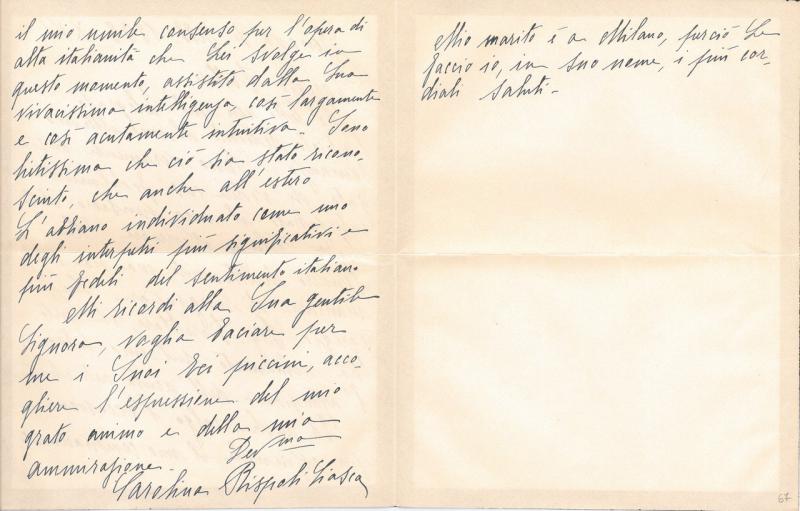 il mio umile consenso per l'opera di
alta italianità che Lei svolge in
questo momento, assistito dalla Sua
vivacissima intelligenza, così largamente
e così acutamente intuitiva. Sono
lietissima che ciò sia stato ricono-
sciuto, che anche all'estero
L'abbiano individuato come uno
degli interpreti più significativi e
più fedeli del sentimento italiano
Mi ricordi alla Sua gentile
Signora, voglia baciare per
me i Suoi bei piccini, acco-
gliere l'espressione del mio
grato animo e della mia
ammirazione.
Dev.ma
Carolina Rispoli Ciasca
Mio marito è a Milano, perciò Le
faccio io, in suo nome, i più cor-
diali saluti.-
67